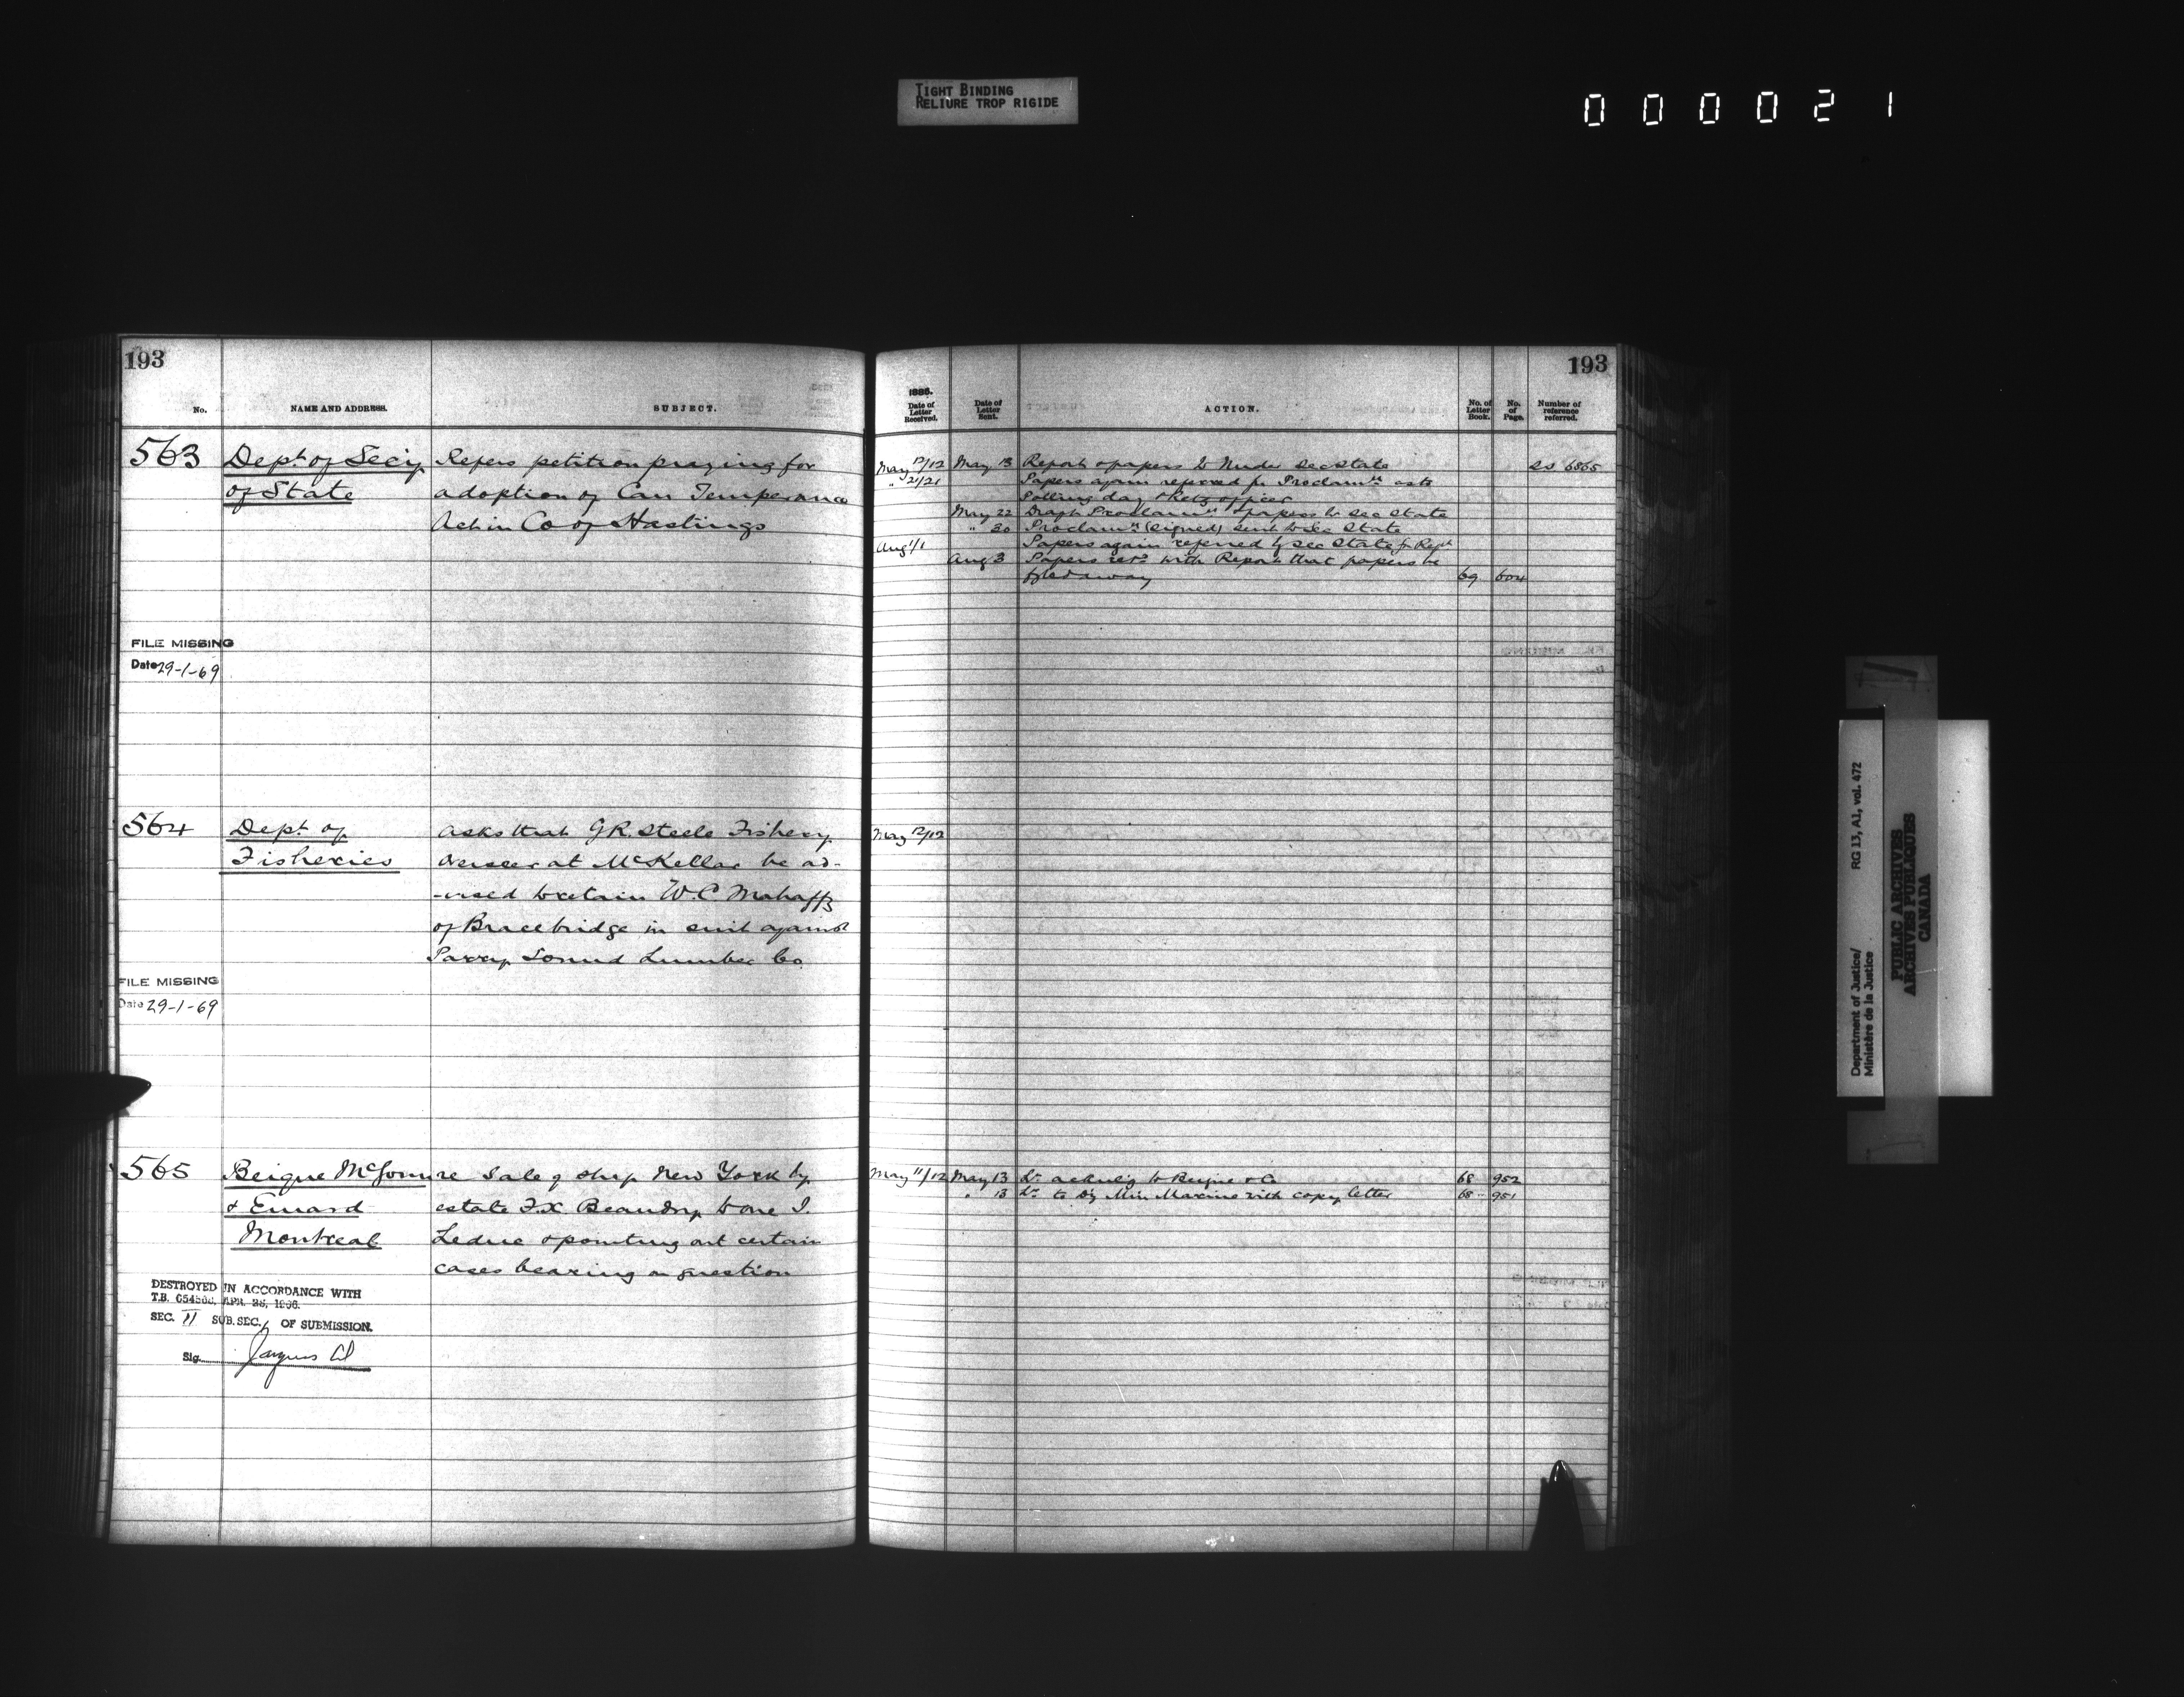 TIGHT BINDING
RELIURE TROP RIGIDE
000021
193
No. NAME AND ADDRESS. SUBJECT.
563 Dept of Secy Refers petition praying for
of State adoption of Can Temperance
Act in Co of Hastings
FILE MISSING
Date 29-1-69
564 Dept of asks that G R. Steele Fishery
Fisheries Overseer at McKellar be ad-
-vised to retain W. C Mahaffy
of Bracebridge in suit against
Parry Sound Lumber Co
FILE MISSING
Date 29-1-69
565 Beique McGoun re Sale of ship New York by
& Emard estate F.X. Beaudry to one I.
Montreal Leduc & pointing out certain
cases bearing on question
DESTROYED IN ACCORDANCE WITH
T.B. APR. 1966.
SEC. II SUB.SEC. OF SUBMISSION.
Sig.
193
1885.
Date of Letter Received. Date of Letter Sent. ACTION. No. of Letter Book. No. of Page. Number of reference referred.
May 12/12 May 13 Report & papers to Under Sec State SS 6865
" 21/21 Papers again referred for Proclamtn asks
Polling day & Retg officer
May 22 Draft Proclamtn & papers to Sec State
" 30 Proclamn (signed) sent to Sec State
Aug 1/1 Papers again referred by Sec State for Rept
Aug 3 Papers retd with Report that papers be
fyled away 69 604
May 12/12
May 11/12 May 13 Lr acknlg to Beique & Co 68 952
" 13 Lr to Dy Min Marine with copy letter 68 951
Department of Justice/ RG 13, A1, vol. 472
Ministère de la Justice
PUBLIC ARCHIVES
ARCHIVES PUBLIQUES
CANADA